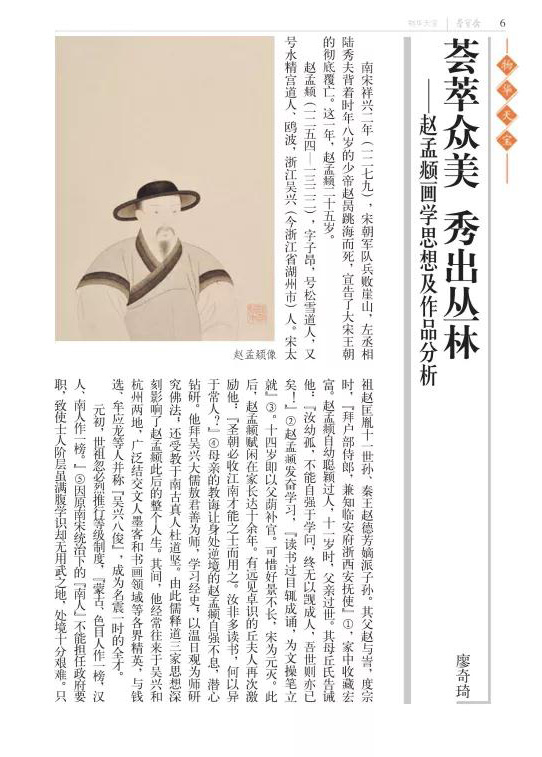 物华天宝 荣宝斋 6
物华天宝
荟萃众美 秀出丛林
——赵孟頫画学思想及作品分析
廖奇琦
南宋祥兴二年（一二七九），宋朝军队兵败崖山，左丞相
陆秀夫背着时年八岁的少帝赵昺跳海而死，宣告了大宋王朝
的彻底覆亡。这一年，赵孟頫二十五岁。
赵孟頫（一二五四—一三二二），字子昂，号松雪道人，又
号水精宫道人、鸥波，浙江吴兴（今浙江省湖州市）人。宋太
赵孟頫像
祖赵匡胤十一世孙、秦王赵德芳嫡派子孙。其父赵与訔，度宗
时，『拜户部侍郎，兼知临安府浙西安抚使』①，家中收藏宏
富。赵孟頫自幼聪颖过人，十一岁时，父亲过世。其母丘氏告诫
他：『汝幼孤，不能自强于学问，终无以觊成人，吾世则亦已
矣！』②赵孟頫发奋学习，『读书过目辄成诵，为文操笔立
就』③。十四岁即以父荫补官。可惜好景不长，宋为元灭。此
后，赵孟頫赋闲在家长达十余年。有远见卓识的丘夫人再次激
励他：『圣朝必收江南才能之士而用之。汝非多读书，何以异
于常人？』④母亲的教诲让身处逆境的赵孟頫自强不息，潜心
钻研。他拜吴兴大儒敖君善为师，学习经史；以温日观为师研
究佛法；还受教于南古真人杜道坚。由此儒释道三家思想深
刻影响了赵孟頫此后的整个人生。其间，他经常往来于吴兴和
杭州两地，广泛结交文人墨客和书画领域等各界精英，与钱
选、牟应龙等人并称『吴兴八俊』，成为名震一时的全才。
元初，世祖忽必烈推行等级制度，『蒙古、色目人作一榜，汉
人、南人作一榜。』⑤因原南宋统治下的『南人』不能担任政府要
职，致使士人阶层虽满腹学识却无用武之地，处境十分艰难。只